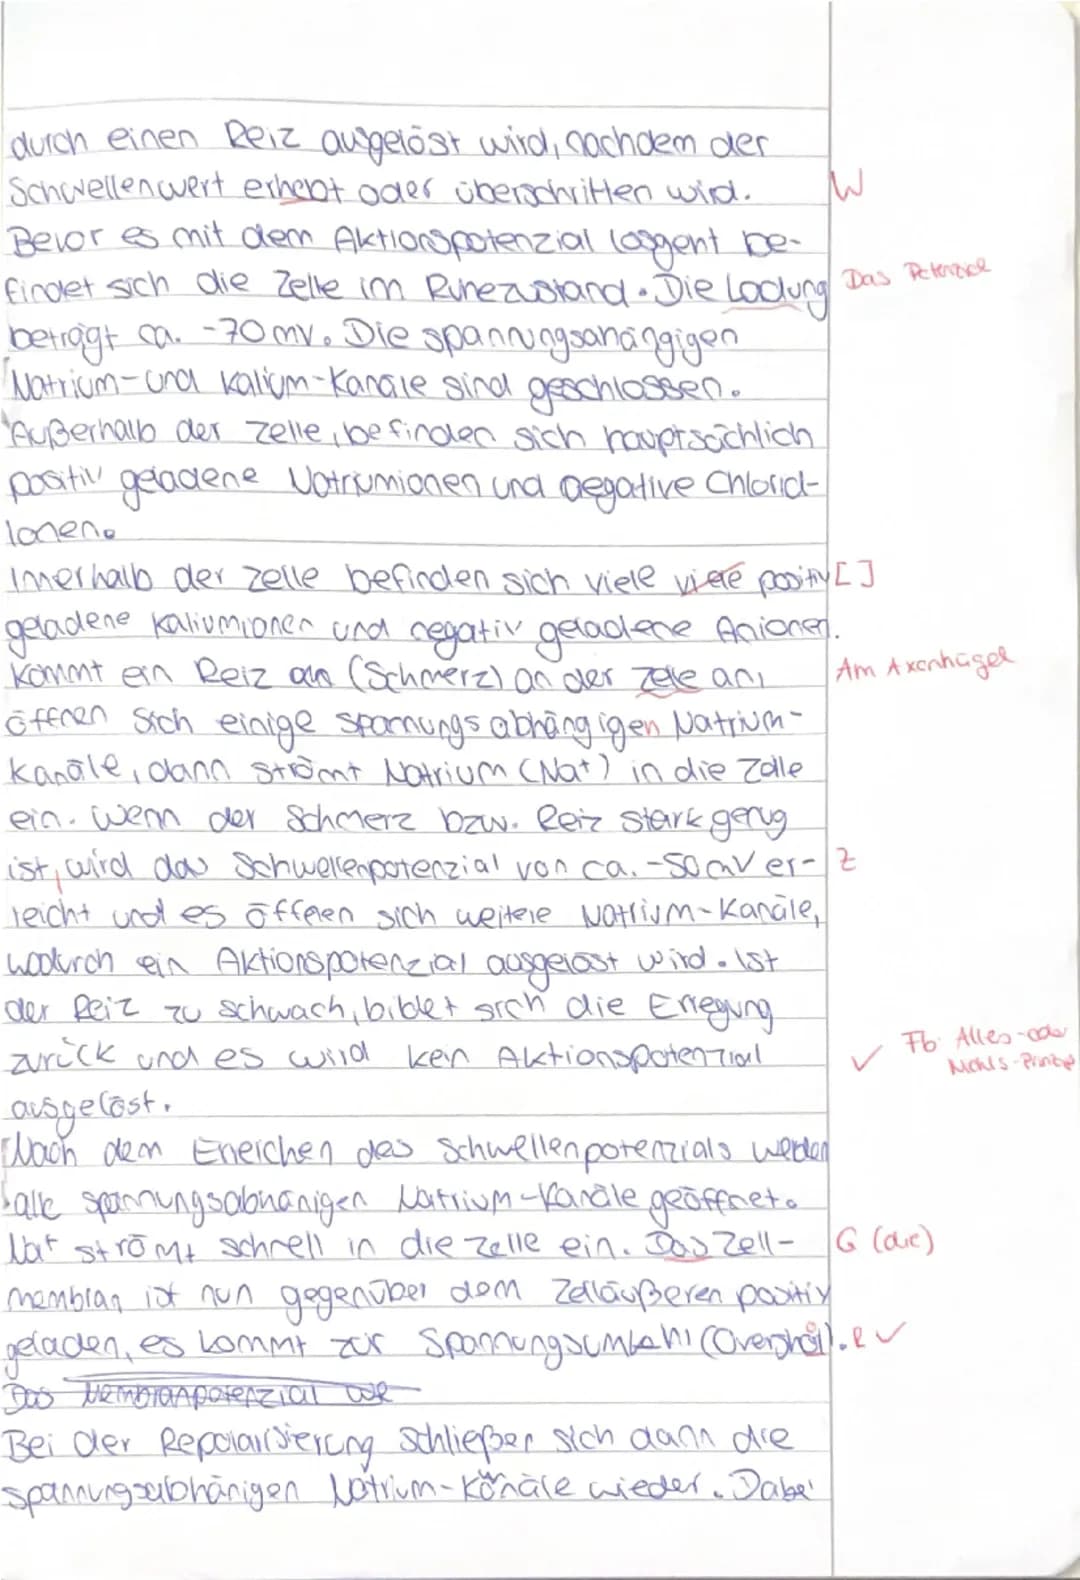 durch einen Reiz ausgelöst wird, nachdem der
Schwellenwert erhebt oder überschritten wird. W
Bevor es mit dem Aktionspotenzial losgeht be-
findet sich die Zelle im Ruhezustand. Die Ladung Das Potenzial
beträgt ca. -70 mv. Die spannungsanängigen
Natrium- und Kalium-Kanäle sind geschlossen.
Außerhalb der Zelle, befinden sich hauptsächlich
positiv geladene Natriumionen und negative Chlorid-
Ionen.
Innerhalb der Zelle befinden sich viele viele positiv []
geladene Kaliumionen und negativ geladene Anionen.
Kommt ein Reiz an (Schmerz) an der Zelle an, Am Axonhügel
öffnen sich einige spannungsabhängigen Natrium-
Kanäle, dann strömt Natrium (Na+) in die Zelle
ein. Wenn der Schmerz bzw. Reiz stark genug
ist, wird das Schwellenpotenzial von ca. -50mV er- Z
reicht und es öffenen sich weitere Natrium-Kanäle,
wodurch ein Aktionspotenzial ausgelöst wird. Ist
der Reiz zu schwach, bildet sich die Erregung
zurück und es wird kein Aktionspotenzial ✓ Fb: Alles-oder
Nichts-Prinzip
ausgelöst.
Nach dem Erreichen des Schwellenpotenzials werden
alle spannungsabhänigen Natrium-Kanäle geöffnet.
Na+ strömt schnell in die Zelle ein. Das Zell- G (die)
membran ist nun gegenüber dem Zelläußeren positiv
geladen, es kommt zur Spannungsumkehr (Overshot). R ✓
Das Membranpotenzial
Bei der Repolarisierung schließen sich dann die
spannungsabhänigen Natrium-Kanäle wieder. Dabei